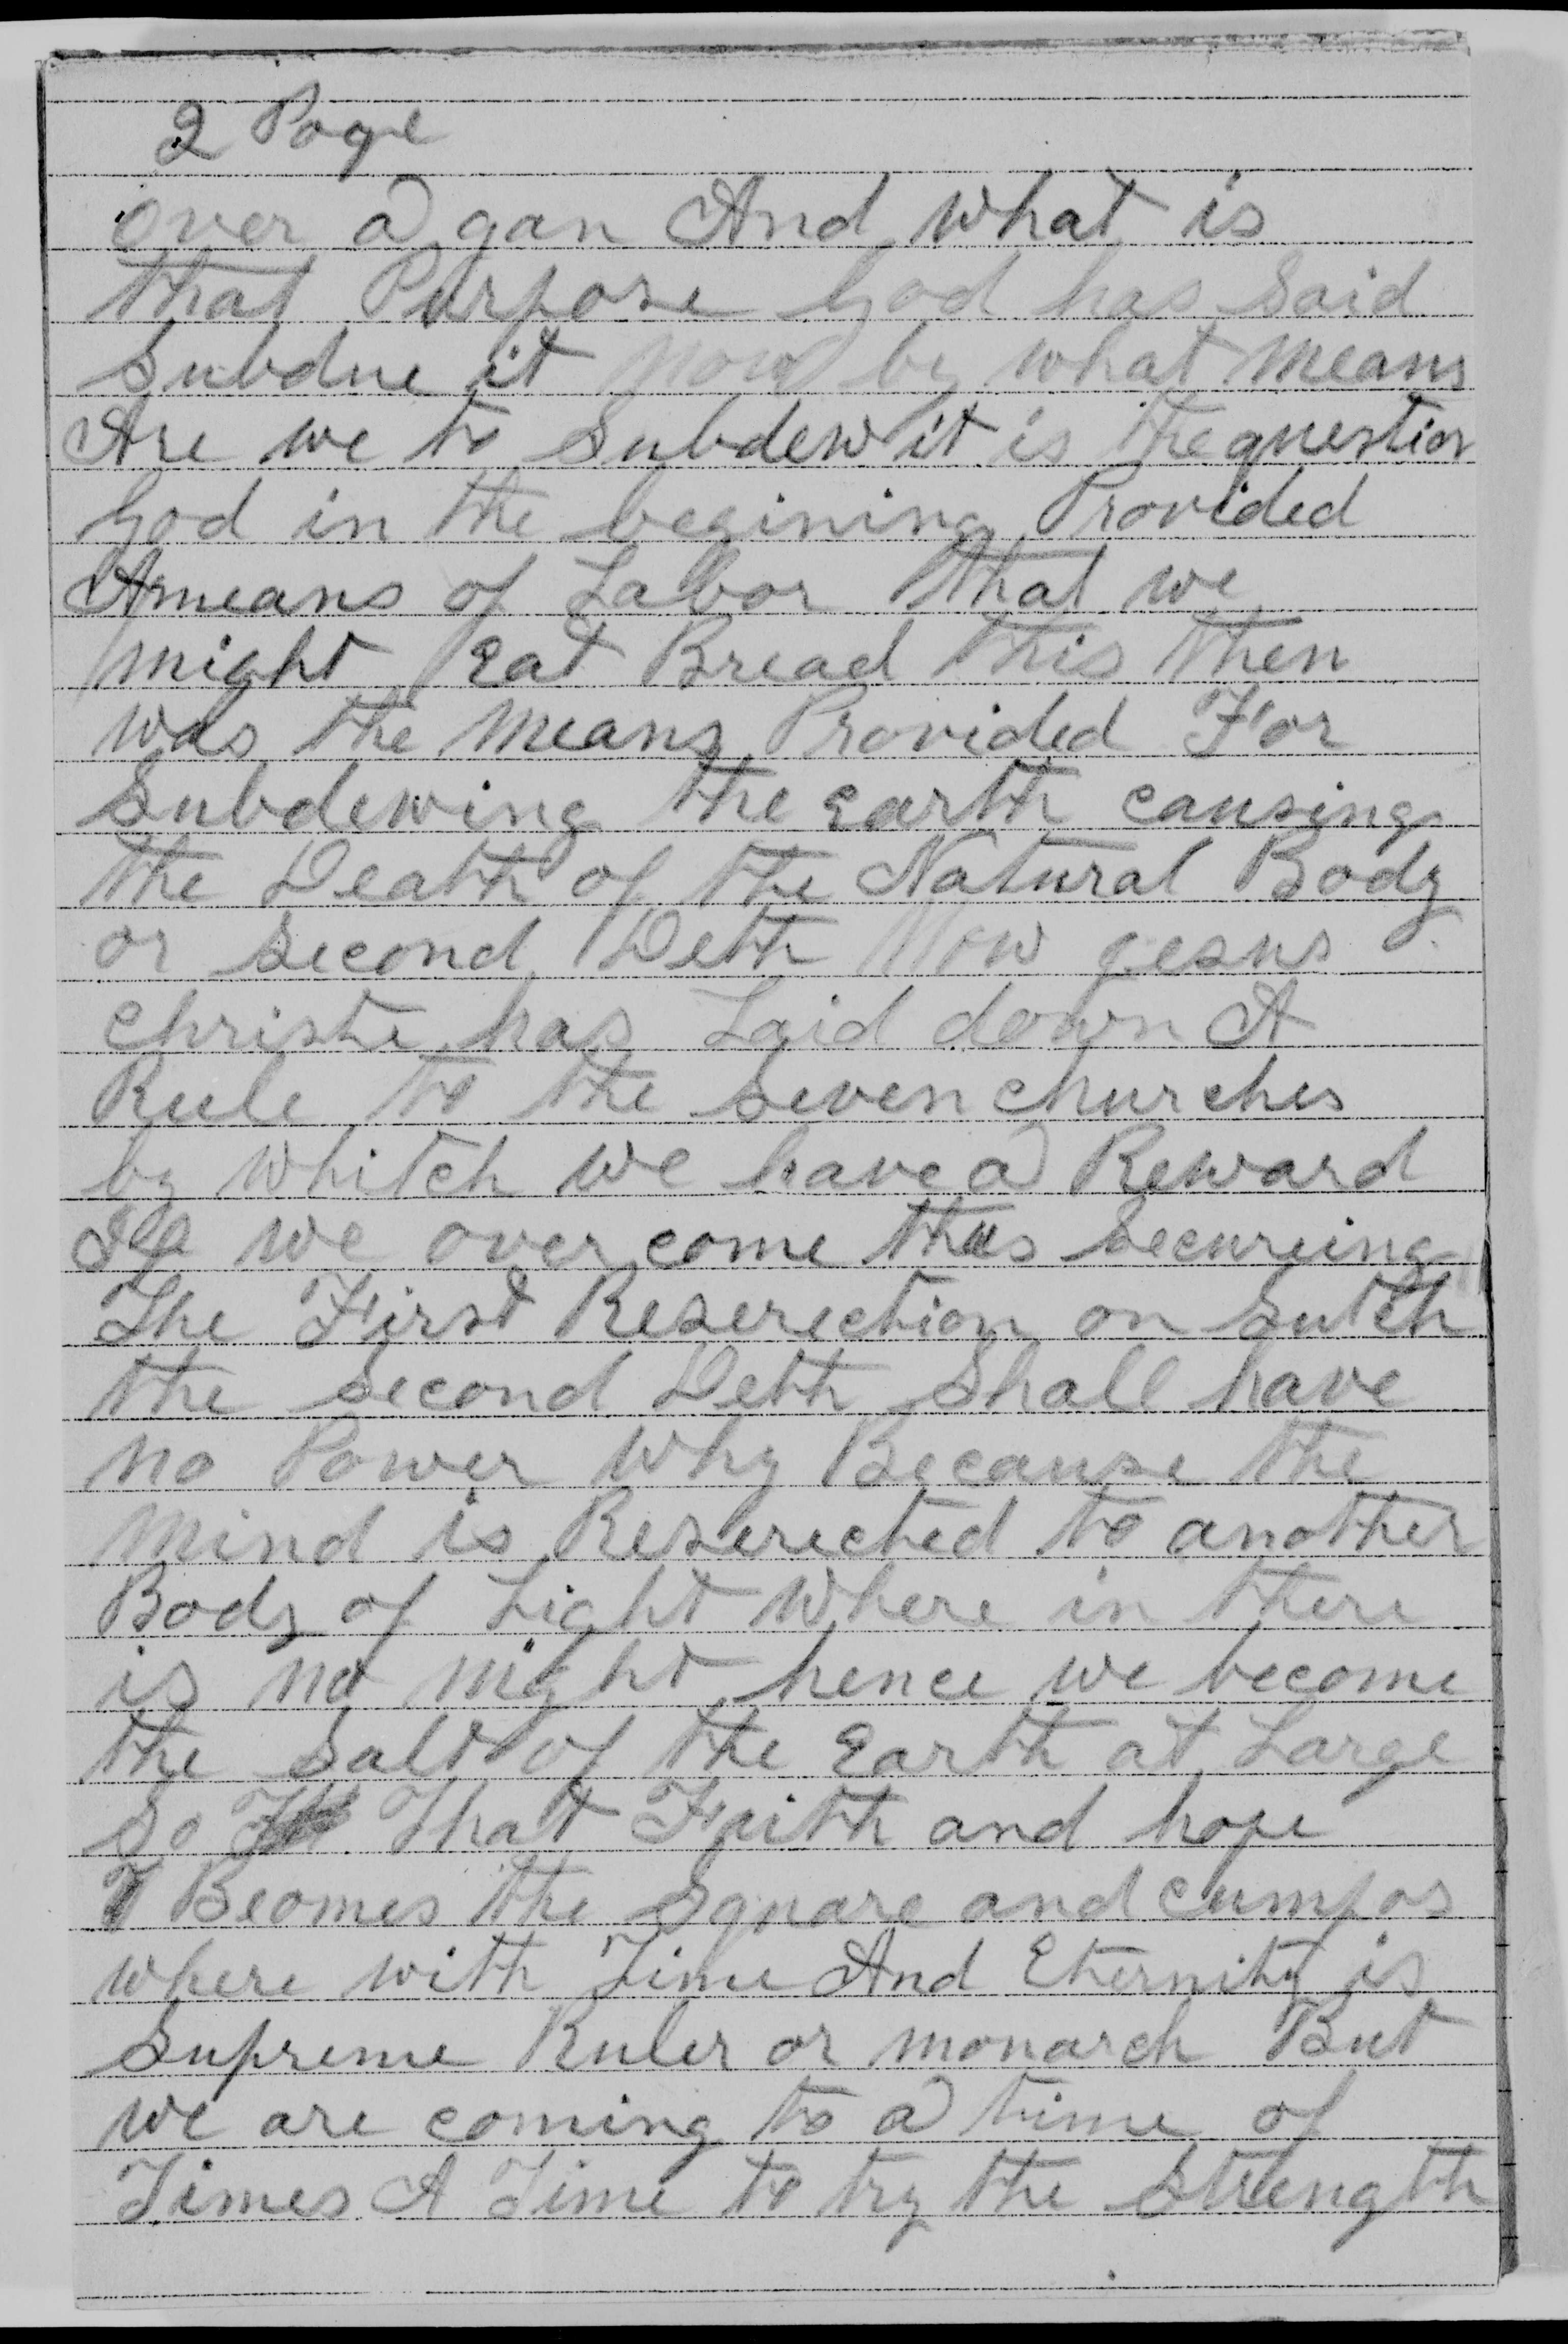 2 Page
over a gan And what is
that Purpose God has Said
Subdue it Now by what means
Are we to Subdew it is the question
God in the begining Provided
A means of Labor that we
might Eat Bread this then
was the means Provided For
Subdewing the Earth causing
the Death of the Natural Body
or Second Deth Now jesus
christe has Laid down A
Rule to the Seven churches
by whitch we have a Reward
If we over come thus Secureing
The First Reserection on Sutch
the Second Deth Shall have
no Power why Because the
mind is Reserected to another
Body of Light where in there
is no night hence we become
the Salt of the Earth at Large
So That Faith and hope
Beomes the Square and cumpos
where with Time And Eternity is
Supreme Ruler or monarch But
we are coming to a time of
Times A Time to try the Strength